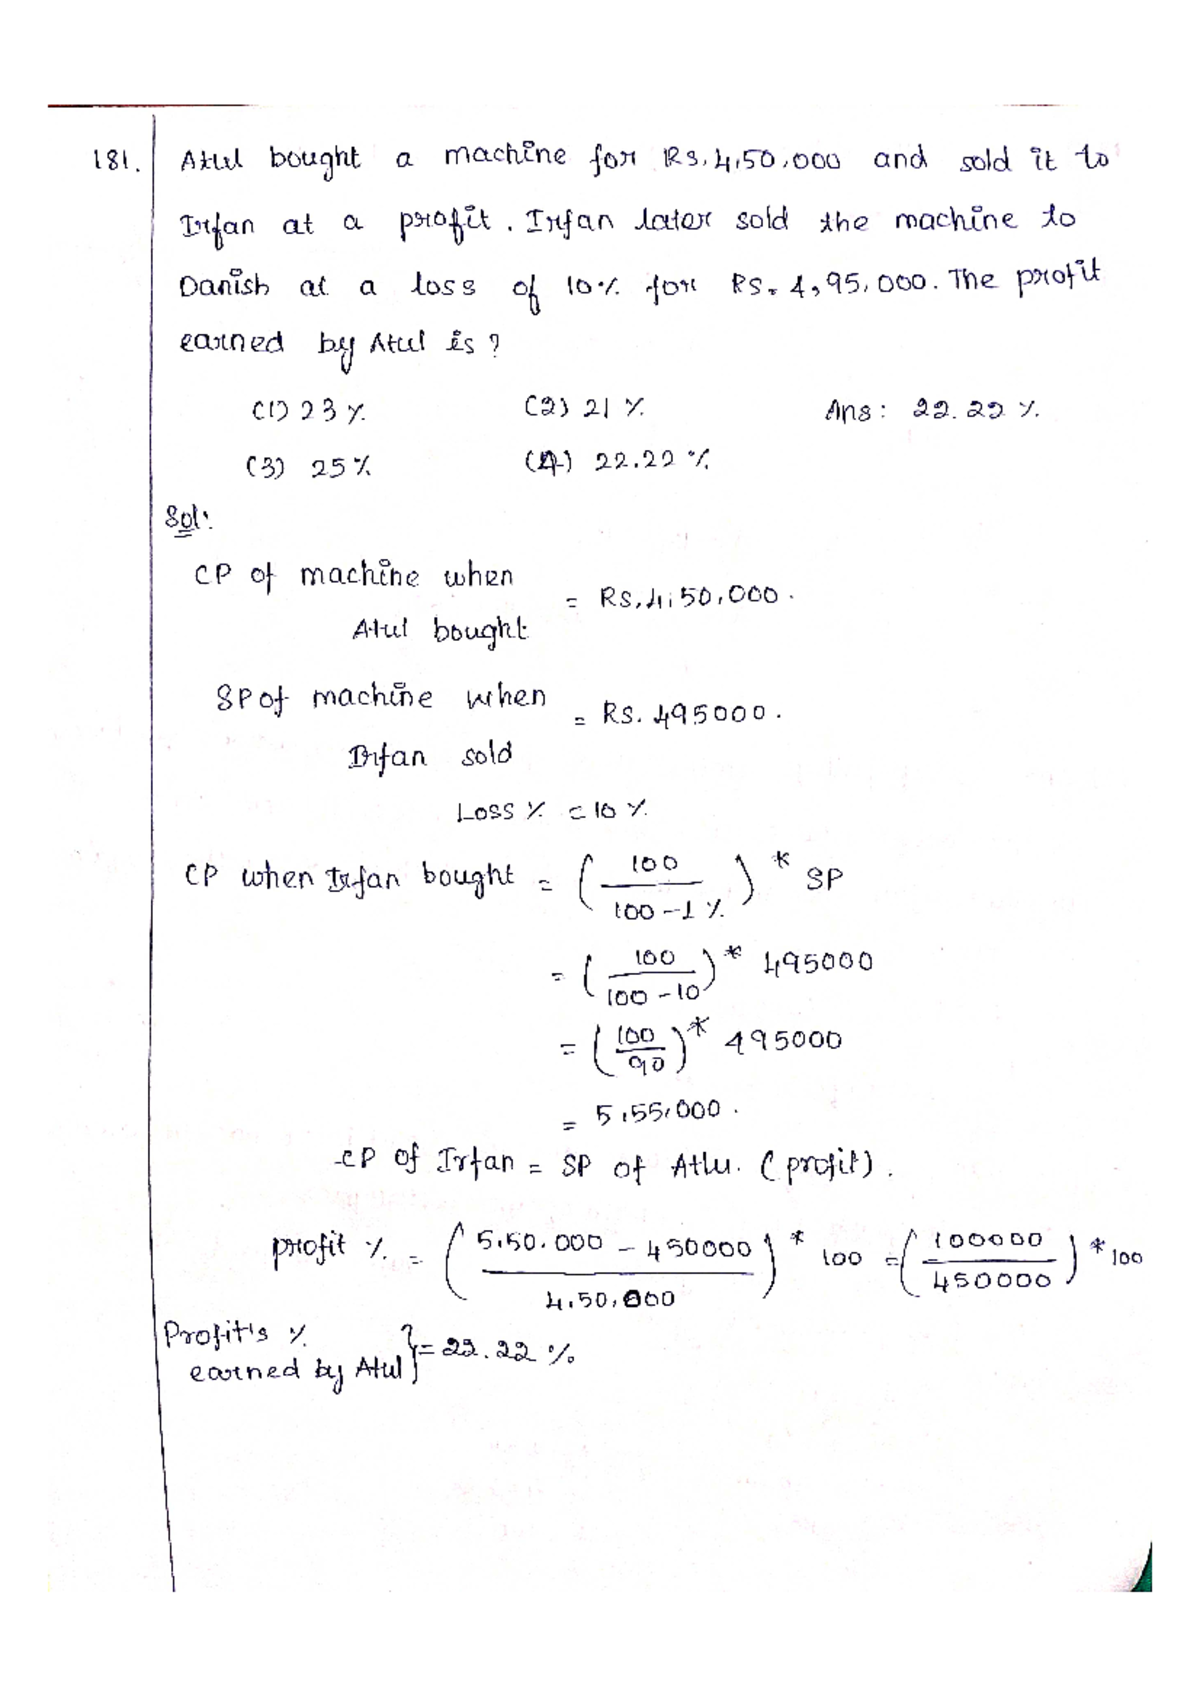 181. Atul bought a machine for Rs. 4,50,000 and sold it to
Irfan at a profit. Irfan later sold the machine to
Danish at a loss of 10% for Rs. 4,95,000. The profit
earned by Atul is?
(1) 23 % (2) 21 % Ans: 22.22 %.
(3) 25 % (4) 22.22 %
Sol:
CP of machine when
Atul bought = Rs. 4,50,000.
SP of machine when
Irfan sold = Rs. 495000.
Loss % = 10 %
CP when Irfan bought = (100 / 100 - 1 %) * SP
= (100 / 100 - 10) * 495000
= (100 / 90) * 495000
= 5,55,000.
CP of Irfan = SP of Atlu. (profit).
profit % = (5,50,000 - 450000 / 4,50,000) * 100 = (100000 / 450000) * 100
Profit's %
earned by Atul } = 22.22 %